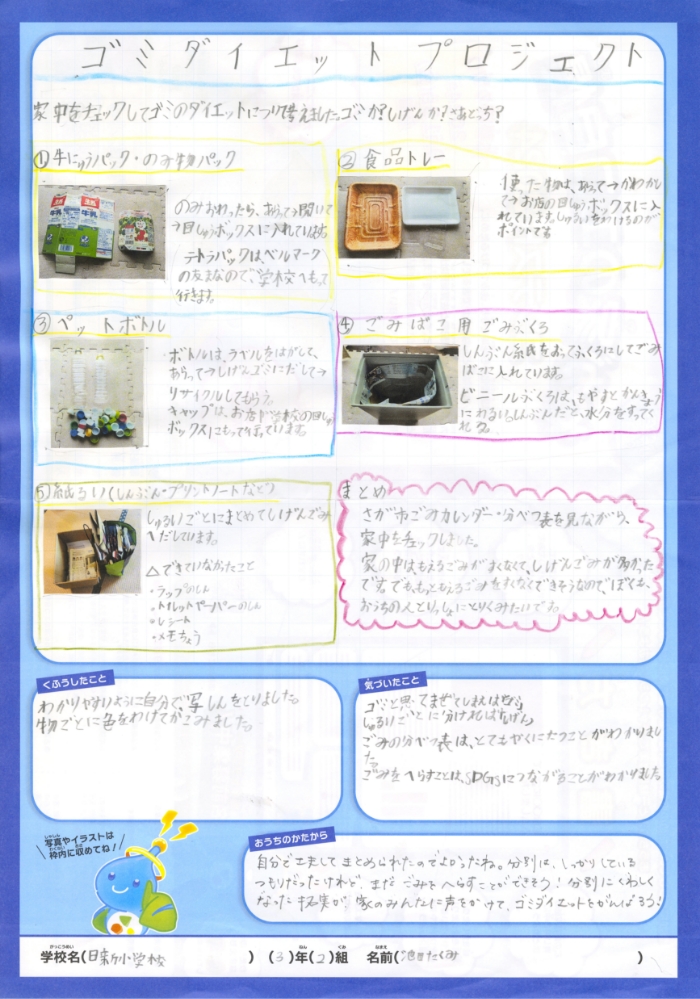 ゴミダイエットプロジェクト
家中をチェックしてゴミのダイエットについて考えました。ゴミか?しげんか?さあどっち?
①牛にゅうパック・のみ物パック
のみおわったら、あらって→開いて
→回しゅうボックスに入れています
テトラパックはベルマーク
の点まなので、学校へもって
行きます。
②食品トレー
使った物は、あらって→かわかし
て→お店の回しゅうボックスに入
れています。しゅるいをわけるのが、
ポイントです
③ペットボトル
ボトルは、ラベルをはがして、
あらって→しげんゴミにだして→
リサイクルしてもらう。
キャップは、お店や学校の回しゅう
ボックスにもって行っています。
④ごみばこ用ごみぶくろ
しんぶん紙をおって、ふくろにしてごみ
ばこに入れています。
ビニールぶくろは、もやすとかんきょう
にわるい。しんぶんだと、水分をすってく
れる。
⑤紙るい(しんぶん・プリントノートなど)
しゅるいごとにまとめてしげんごみ
へだしています。
△できていなかったこと
・ラップのしん
・トイレットペーパーのしん
・レシート
・メモちょう
まとめ
さが市ごみカレンダー・分べつ表を見ながら、
家中をチェックしました。
家の中はもえるごみがすくなくて、しげんごみが多かった
です。でも、もっともえるごみをすくなくできそうなのでぼくも、
おうちの人といっしょにとりくみたいです。
くふうしたこと
わかりやすいように自分で、写しんをとりました。
物ごとに色をわけてかこみました。
気づいたこと
ゴミと思ってまぜてしまえば
しゅるいごとに分ければ「しげん」
ごみの分べつ表は、とてもやくにたつことがわかりまし
た。
ごみをへらすことは、SDGsにつながることがわかりました
写真やイラストは
枠内に収めてね!
おうちのかたから
自分で工夫してまとめられたのでよかったね。分別は、しっかりしている
つもりだったけれど、まだごみをへらすことができそう!分別にくわしく
なった拓実が、家のみんなに声をかけて、ゴミダイエットをがんばろう!
学校名(日新小学校) (3)年(2)組 名前(池田たくみ)